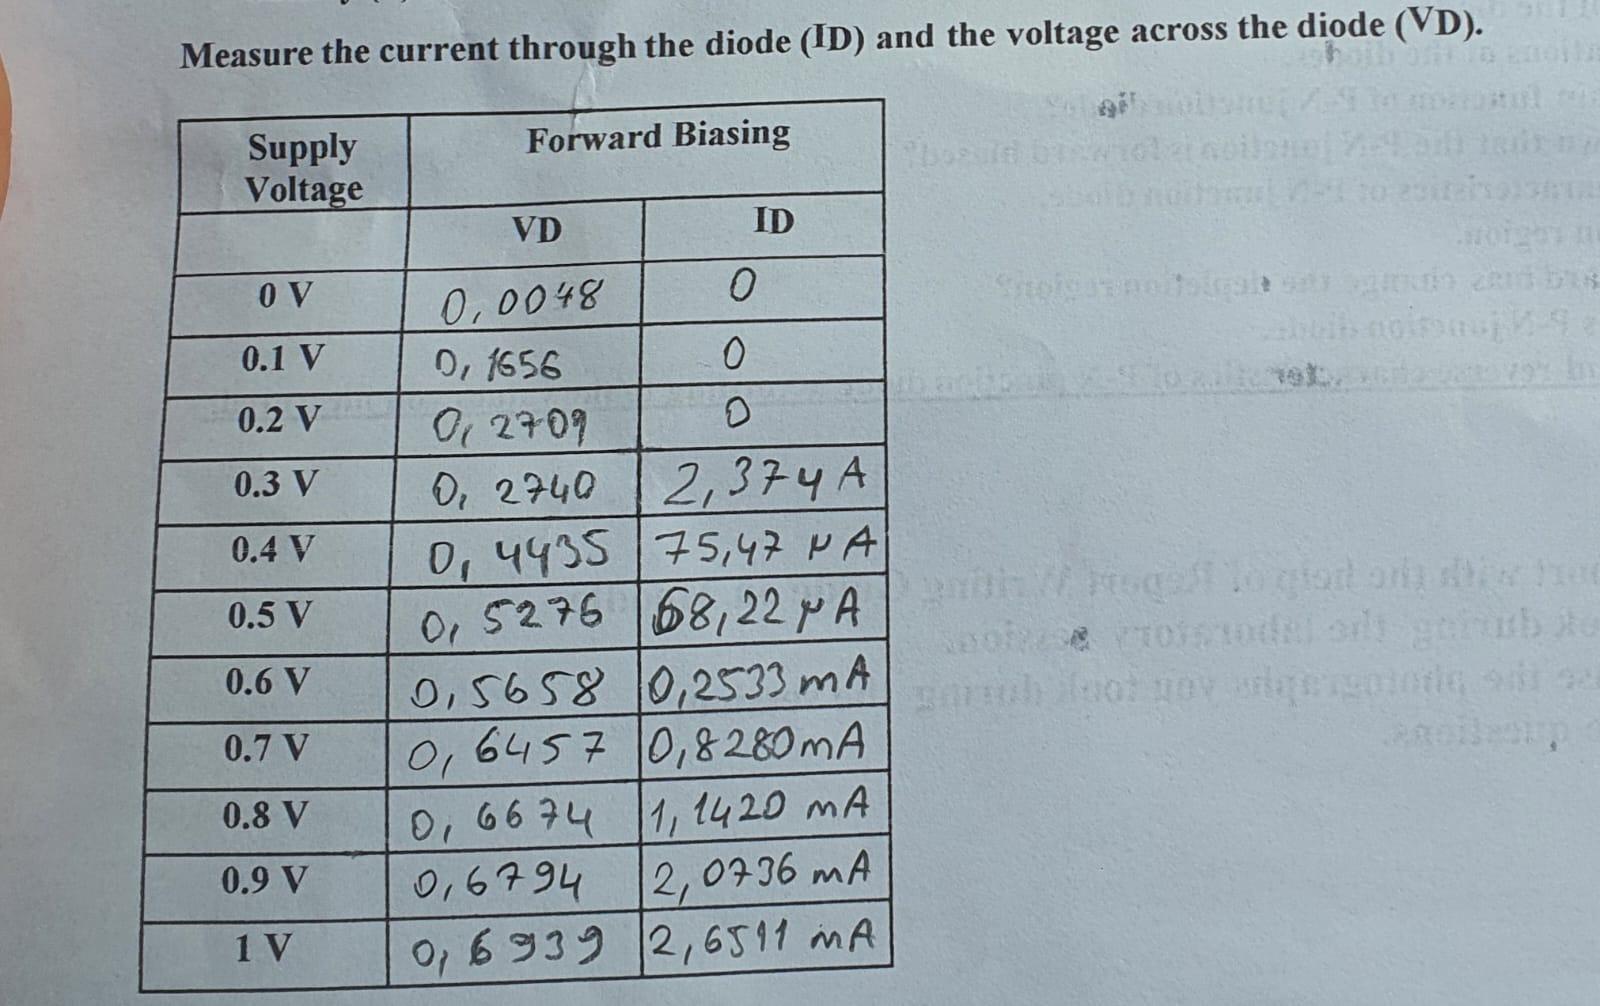 Measure the current through the diode (ID) and the voltage across the diode (VD).
Supply Voltage Forward Biasing
VD ID
0 V 0,0048 0
0.1 V 0,1656 0
0.2 V 0,2709 0
0.3 V 0,2740 2,374 A
0.4 V 0,4435 75,47 μA
0.5 V 0,5276 68,22 μA
0.6 V 0,5658 0,2533 mA
0.7 V 0,6457 0,8280 mA
0.8 V 0,6674 1,1420 mA
0.9 V 0,6794 2,0736 mA
1 V 0,6939 2,6511 mA